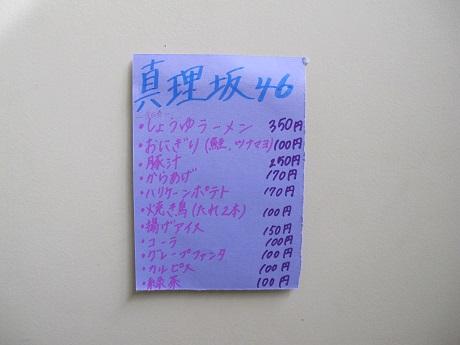 真理坂46
・しょうゆラーメン 350円
・おにぎり(鮭、ツナマヨ)100円
・豚汁 250円
・からあげ 170円
・ハリケーンポテト 170円
・焼き鳥(たれ2本) 100円
・揚げアイス 150円
・コーラ 100円
・グレープファンタ 100円
・カルピス 100円
・緑茶 100円